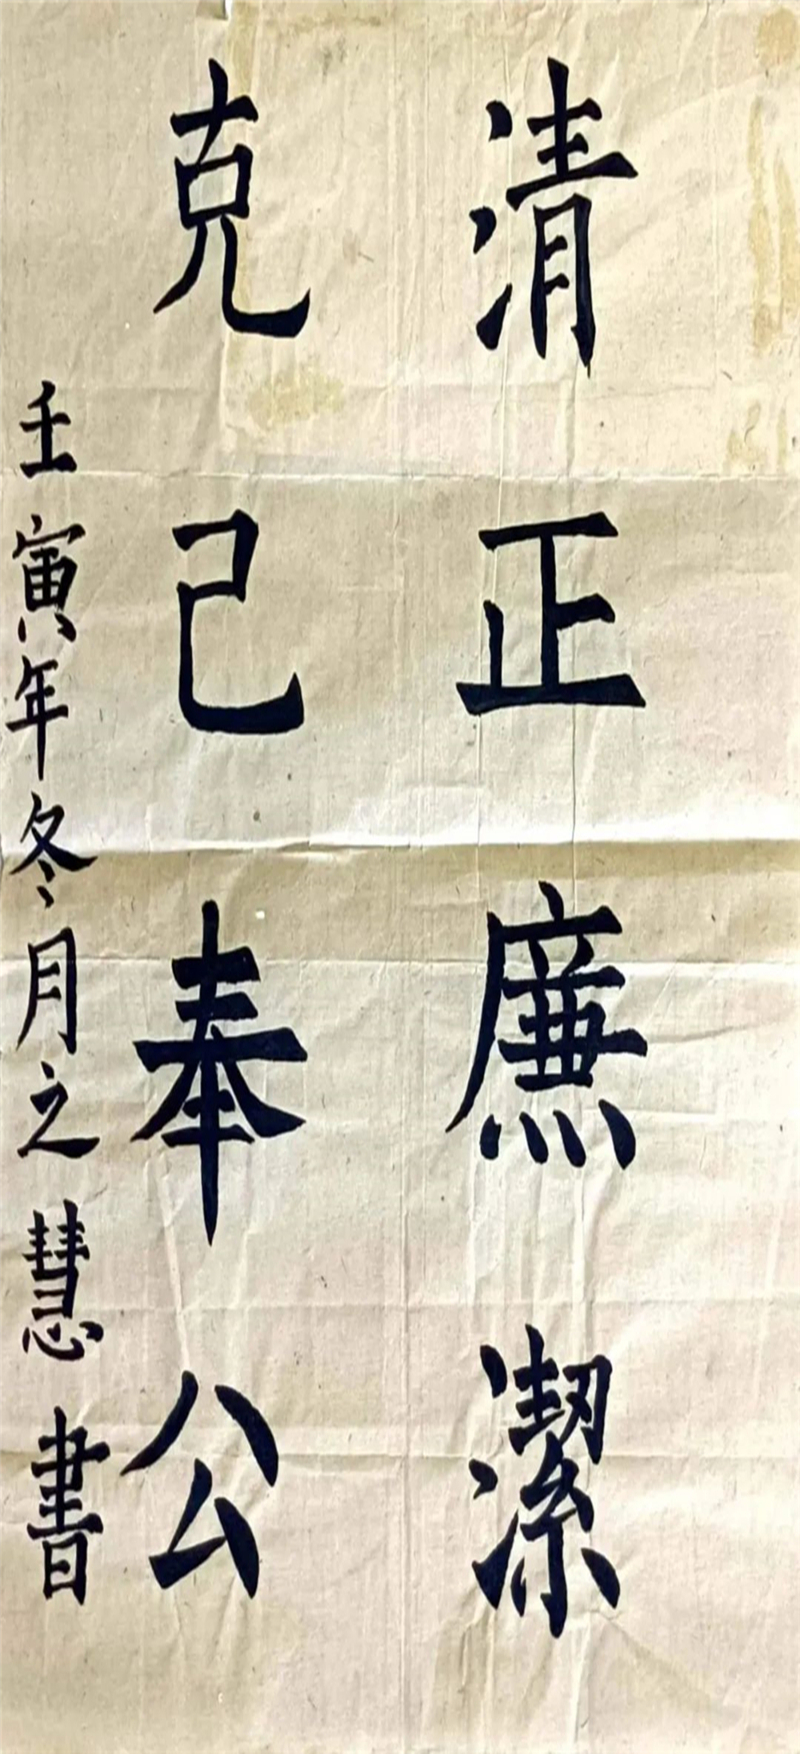 清正廉潔
克己奉公
壬寅年冬月之慧書